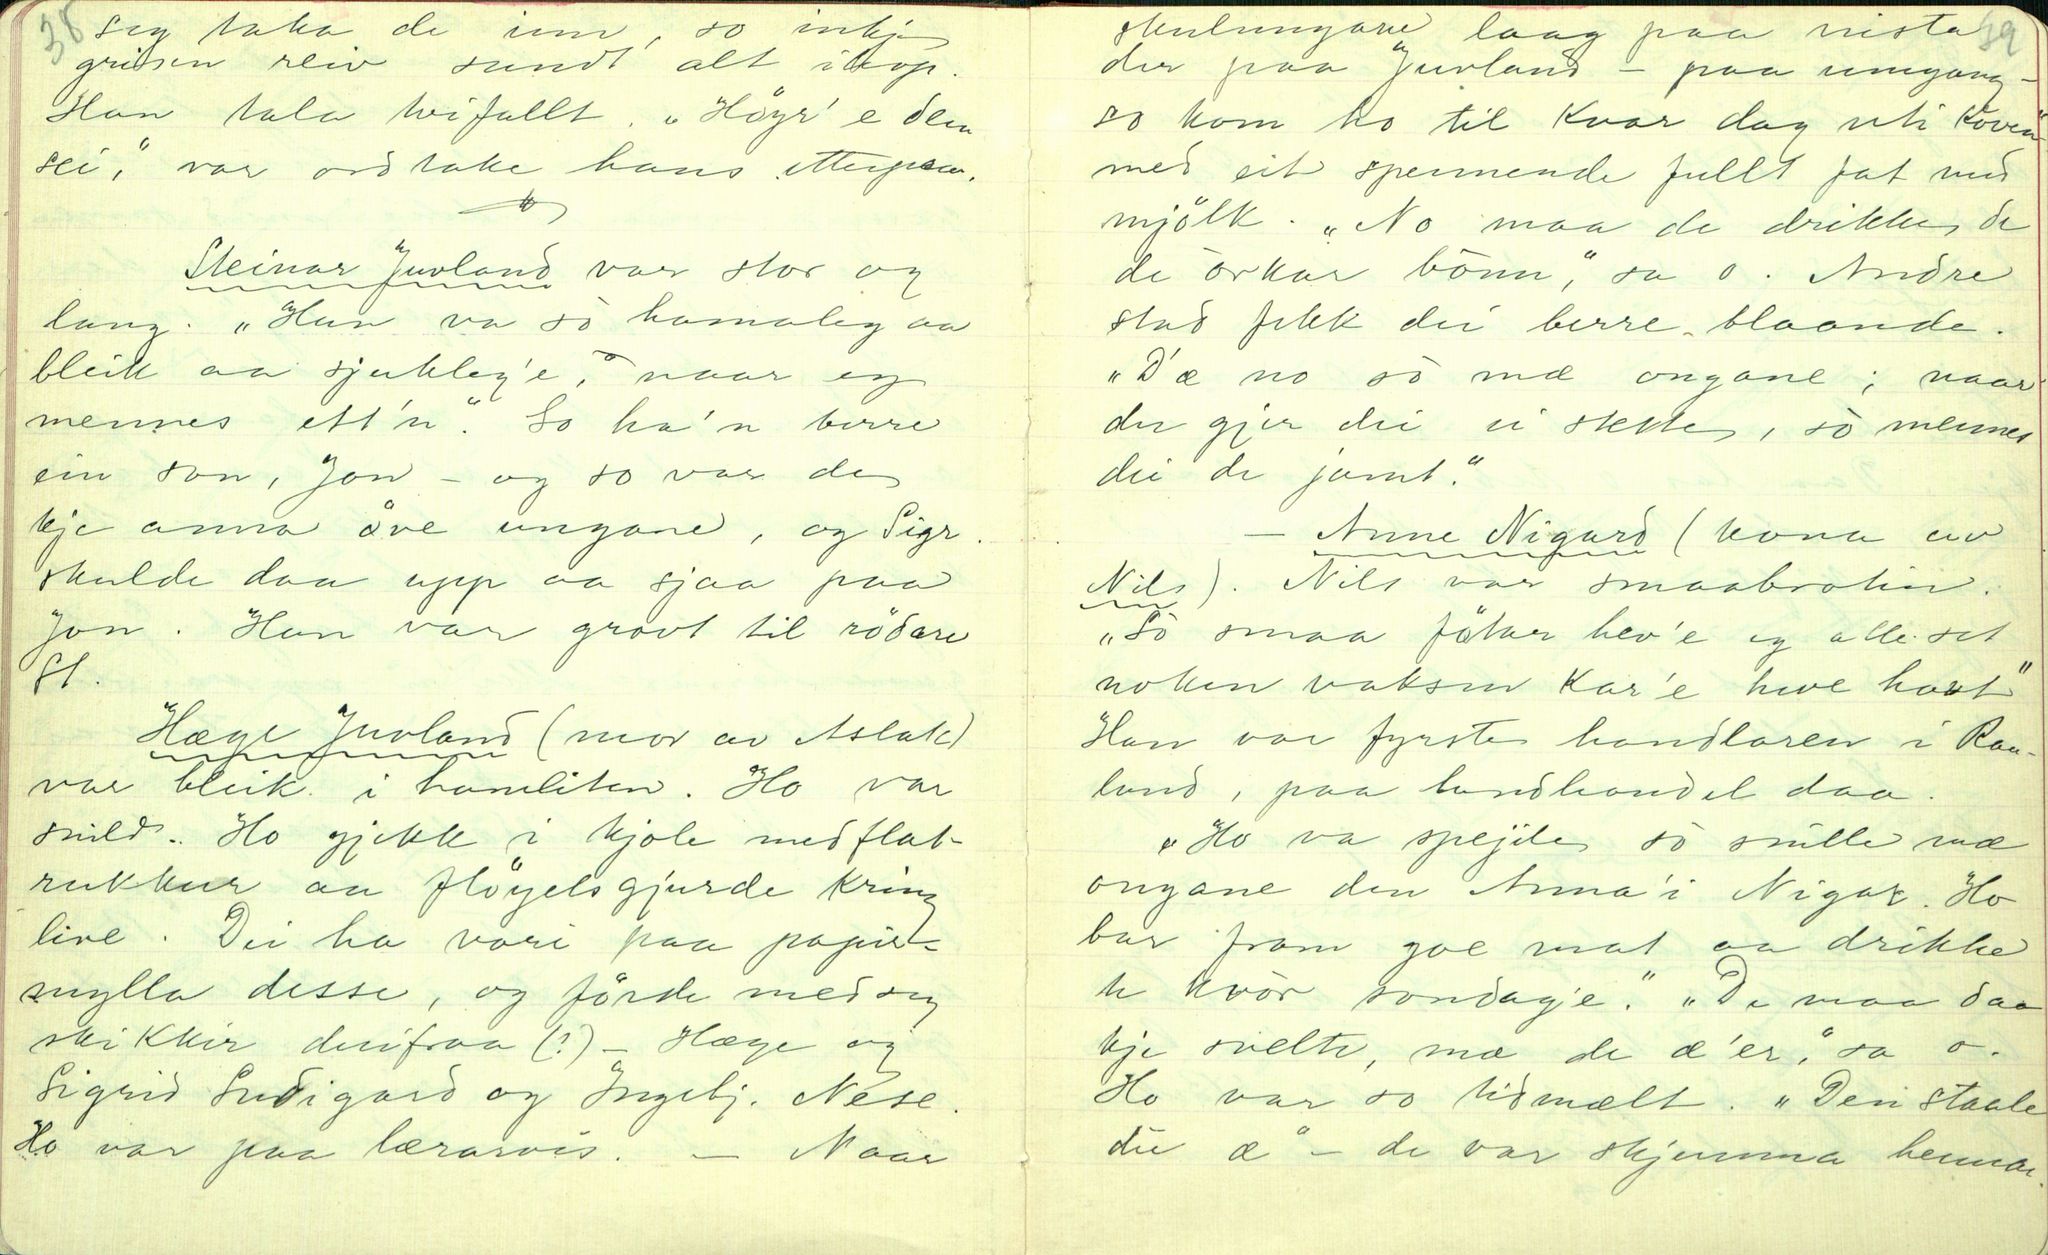 38
seg taka de inn, so inkje
grisen reiv sundt alt ihop.
Han tala kvifallt. „Höyr' e den
sei," var ordtake hans etterpaa.
Steinar Juvland var stor og
lang. „Han va sò hamaleg aa
bleik aa sjukleg'e, naar eg
mennes ett'n." So ha'n berre
ein son, Jon – og so var de
kje anna òve ungane, og Sigr.
skulde daa upp aa sjaa paa
Jon. Han var grovt til rödare
St.
Hæge Juvland (mor av Aslak)
var bleik i hamliten. Ho var
snild. Ho gjekk i kjole med flat-
rukkur aa flöyelsgjurde kring
live. Dei ha vori paa papir-
mylla desse, og förde med seg
skikkir derifraa (?) – Hæge og
Sigrid Sudigard og Ingebj. Nese.
Ho var paa lærarvis. – Naar
39
skulungane laag paa nista
der paa Juvland – paa umgang –
so kom ho til kvar dag uti koven
med eit spennende fullt fat med
mjölk. „No maa de drikke de
de òrkar bònn," sa o. Andre
stad fekk dei berre blaande.
„D'æ no sò mæ ongane; naar
der gjer dei ei skette, sò mennes
dei de jamt."
– Anne Nigard (kona av
Nils). Nils var smaabrotin.
„Sò smaa fötar hev'e eg alle set
noken vaksen kar'e heve havt"
Han var fyrste handlaren i Rau-
land, paa landhandel daa.
„Ho va spejele sò snille mæ
ongane den Anna'i Nigar. Ho
bar fram goe mat aa drikke
te kvòr sondagje." „De maa daa
kje svelte, mæ de æ'er," sa o.
Ho var so tidmælt. „Dei staale
dei æ" – de var skjemma hennar.